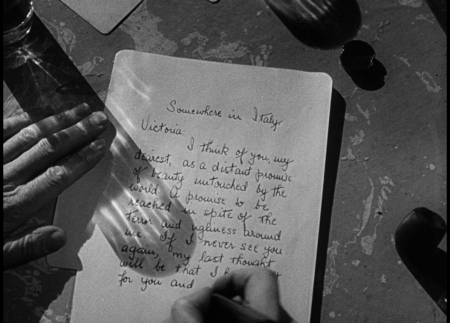 Somewhere in Italy
Victoria
I think of you, my
dearest, as a distant promise
of beauty untouched by the
world. A promise to be
reached in spite of the
terror and ugliness around
me. If I never see you
again, my last thought
will be that I
for you and